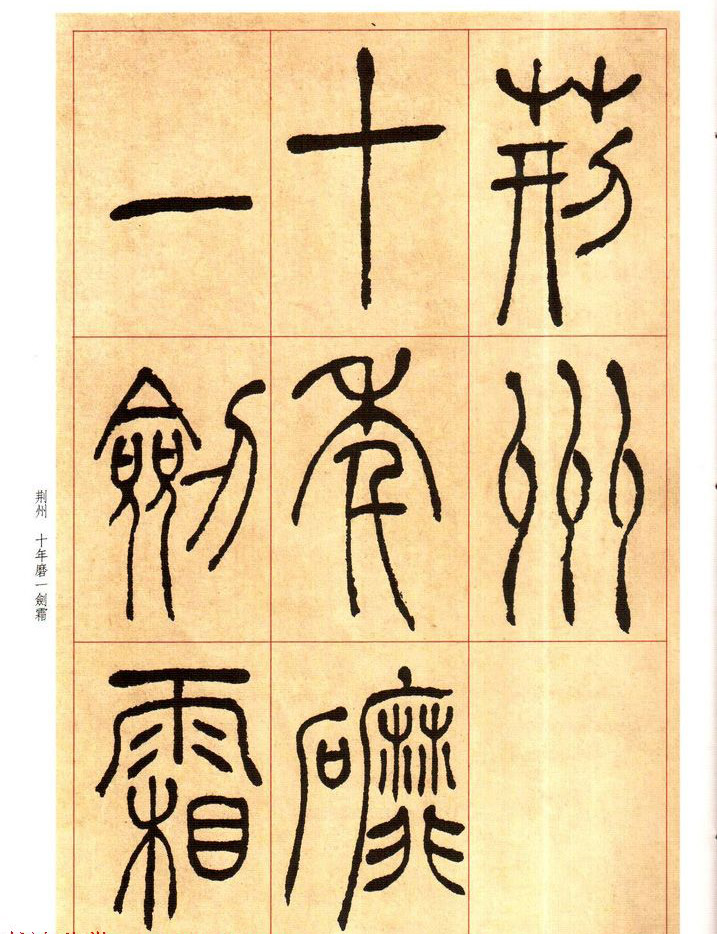 荆州
十年䃺
一劒霜
荆州 十年磨一劍霜